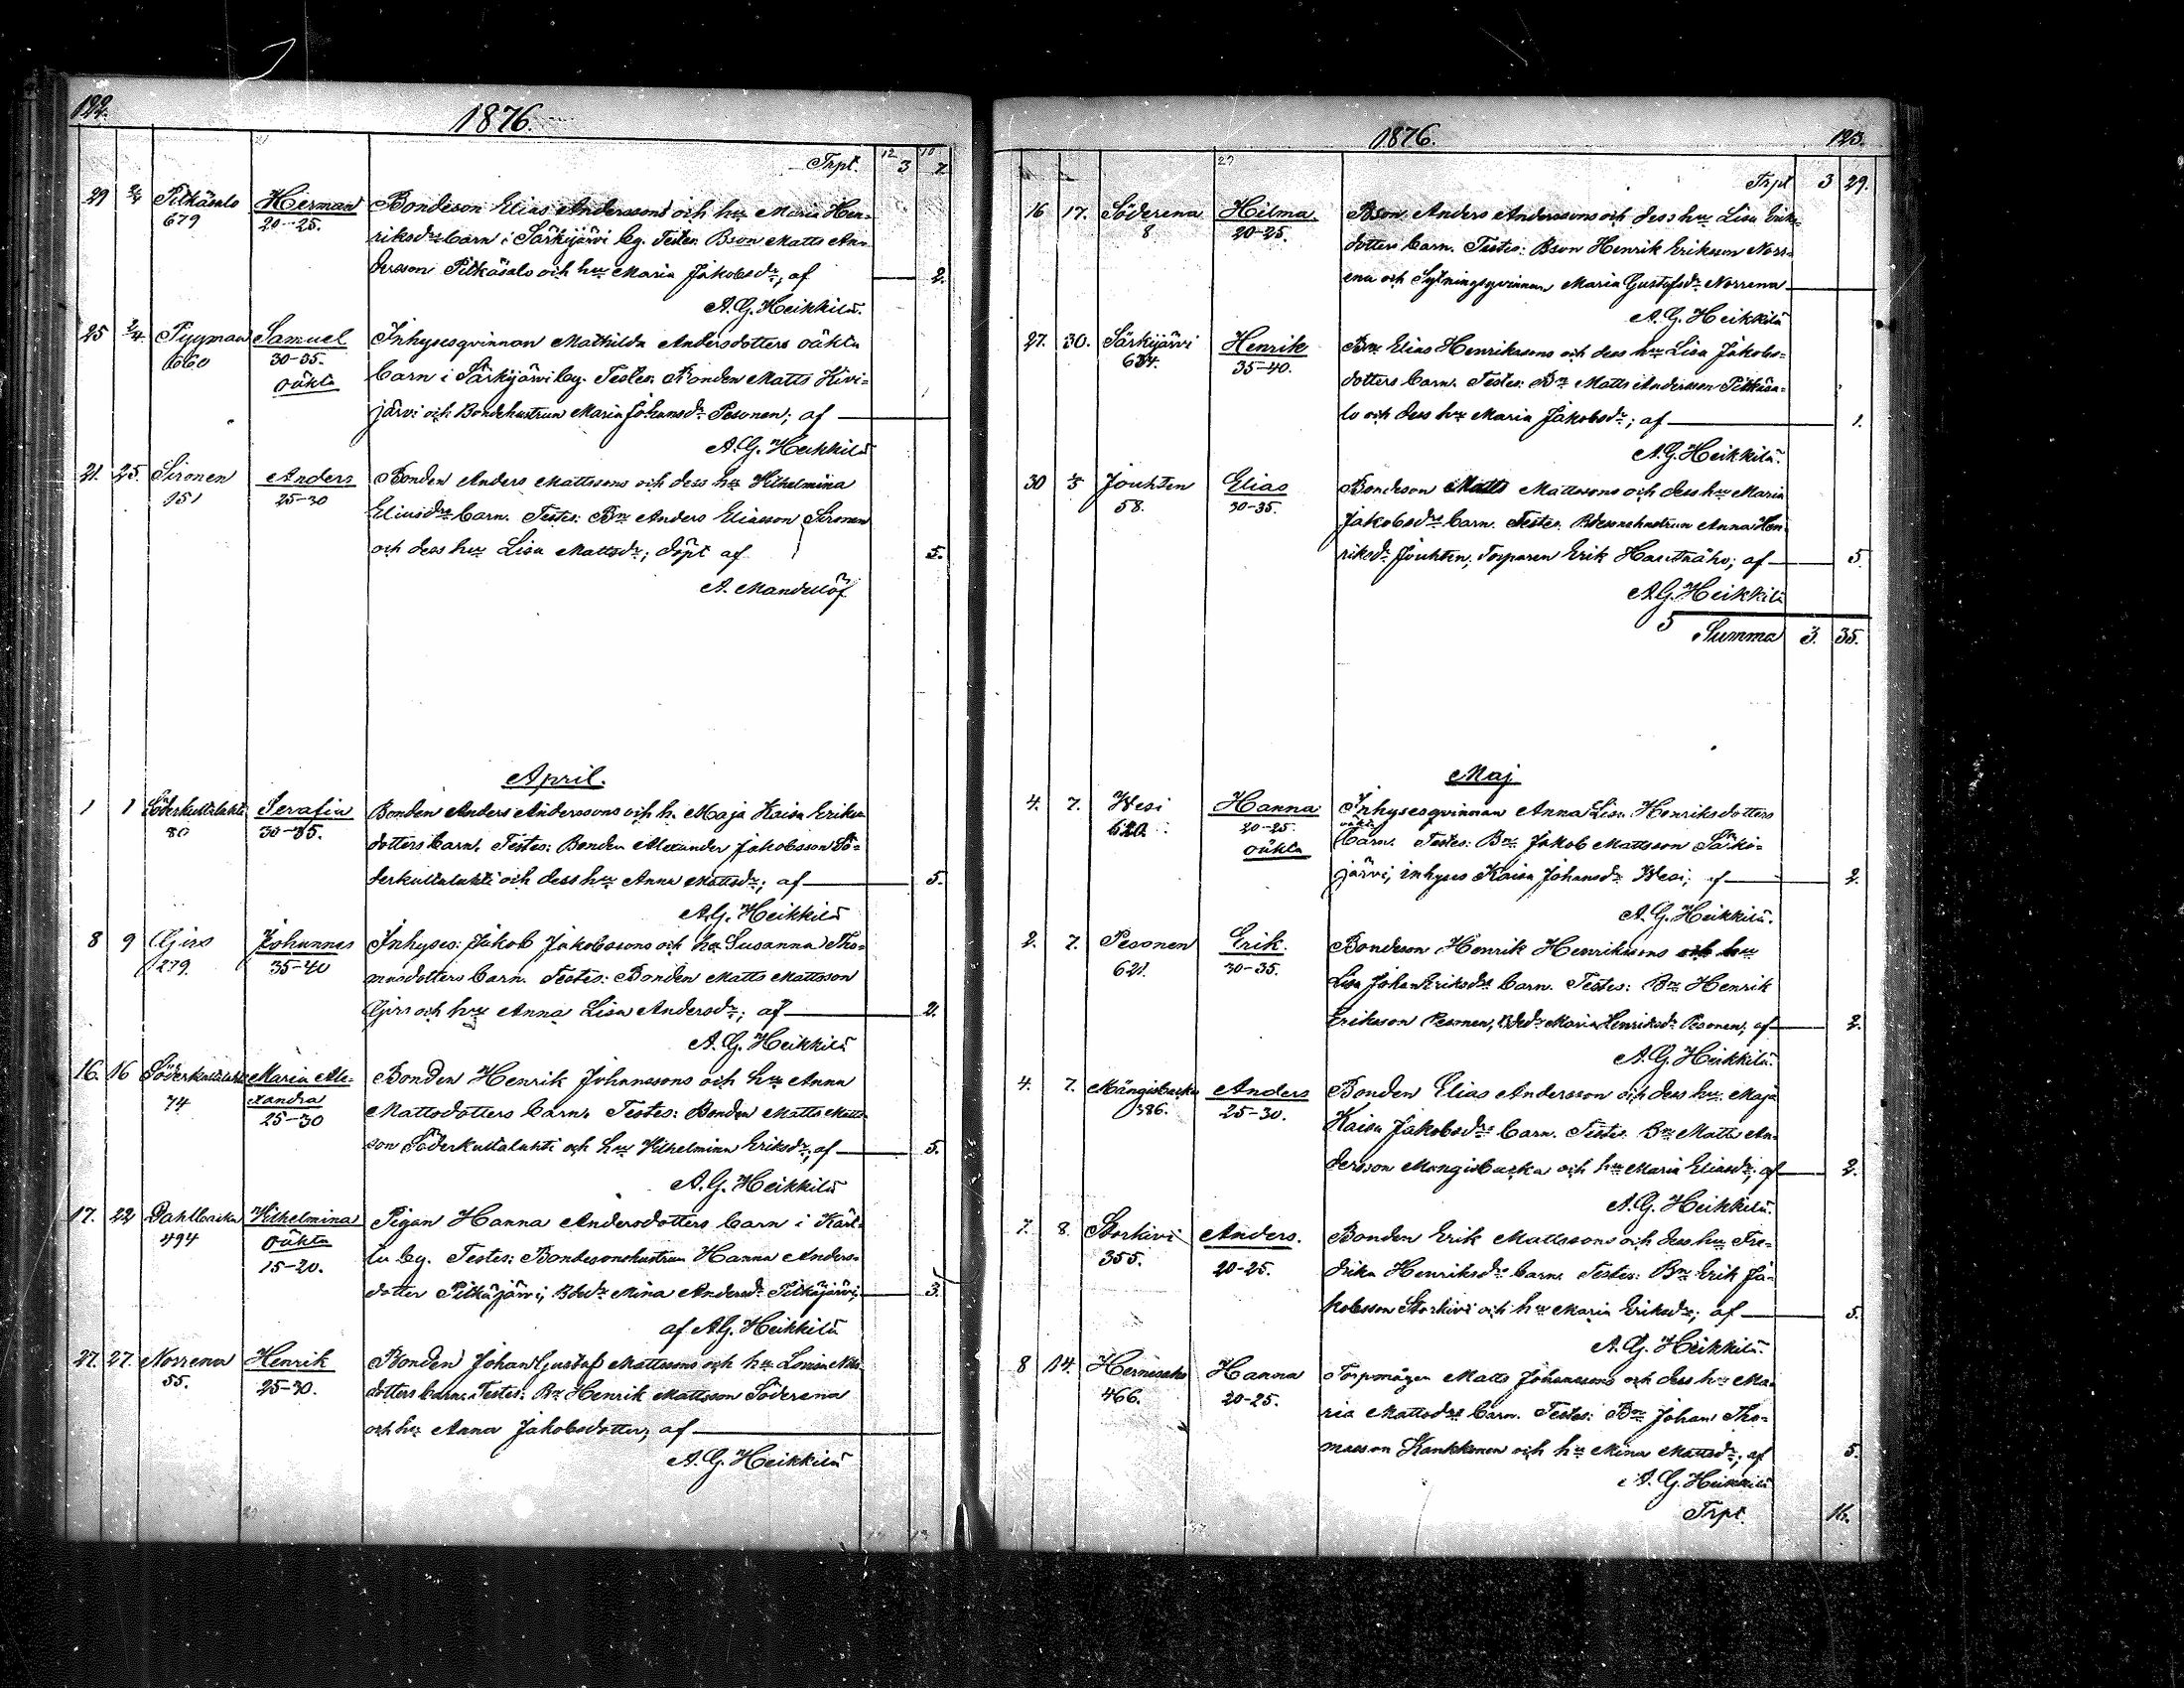 122.
1876.
Trpt. 3 7
29 2/4 Pitkäsalo Herman Bondeson Elias Anderssons och hu Maria Hen-
679 20-25. riksdrs barn i Särkijärvi by. Testes: Bson Matts An-
dersson Pitkäsalo och hu Maria Jakobsdr; af 2.
A. G. Heikkilä.
25 2/4 Pyyman Samuel Inhysesqvinnan Mathilda Andersdotters oäkta
660 30-35. barn i Särkijärvi by. Testes: Bonden Matts Kivi-
oäkta
järvi och Bondehustrun Maria Johansdr Pesonen; af
A. G. Heikkilä
21. 25. Sironen Anders Bonden Anders Mattssons och dess hu Wilhelmina
151 25-30 Eliasdrs barn. Testes: Bn Anders Eliasson Sironen
och dess hu Lisa Mattsdr; döpt af 5.
A. Mandellöf
April.
1 1 Söderkultalahti Serafia Bonden Anders Anderssons och h. Maja Kaisa Eriks-
80 30-35. dotters barn. Testes: Bonden Alexander Jakobsson Sö-
derkultalahti och dess hu Anna Mattsdr; af 5.
A. G. Heikkilä
8 9 Girs Johannes Inhyses: Jakob Jakobssons och hu Susanna Tho-
279. 35-40 masdotters barn. Testes: Bonden Matts Mattsson
Girs och hu Anna Lisa Andersdr; af 2.
A. G. Heikkilä
16. 16 Söderkultalahti Maria Ale- Bonden Henrik Johanssons och hu Anna
74 xandra Mattsdotters barn. Testes: Bonden Matts Matts-
25-30
son Söderkultalahti och hu Wilhelmina Eriksdr; af 5.
A. G. Heikkilä
17. 22 Dahlbacka Wilhelmina Pigan Hanna Andersdotters barn i Kart-
494 oäkta la by. Testes: Bondesonshustrun Hanna Anders-
15-20.
dotter Pitkäjärvi, Bdr Mina Andersdr Pitkäjärvi; 3.
af A. G. Heikkilä
27. 27. Norrena Henrik Bonden Johan Gustaf Mattssons och hu Lovisa Nils-
55. 25-30. dotters barn. Testes: Bn Henrik Mattsson Söderena
och hu Anna Jakobsdotter; af
A. G. Heikkilä
1876. 123.
Trpt 3 29.
16 17. Söderena Hilma Bson Anders Anderssons och dess hu Lisa Eriks-
8 20-25. dotters barn. Testes: Bson Henrik Eriksson Norr-
ena och Sytningsqvinnan Maria Gustafsdr Norrena
A. G. Heikkilä
27. 30. Särkijärvi Henrik Bn Elias Henrikssons och dess hu Lisa Jakobs-
35-40. dotters barn. Testes: Bn Matts Andersson Pitkäsa-
lo och dess hu Maria Jakobsdr; af 1.
A. G. Heikkilä.
30 Jouhten Elias Bondeson Matts Mattssons och dess hu Maria
58. 30-35. Jakobsdrs barn. Testes: Bdesonshustrun Anna Hen-
riksdr Jouhten, Torparen Erik Hautaaho; af 5.
A. G. Heikkilä
5 Summa 3. 35.
Maj
4. 7. Wesi Hanna Inhysesqvinnan Anna Lisa Henriksdotters
620 20-25. oäkta barn. Testes: Bn Jakob Mattsson Särki-
oäkta
järvi, inhyses Kaisa Johansdr Wesi; af 2.
A. G. Heikkilä.
2. 7. Pesonen Erik. Bondeson Henrik Henrikssons och hu
621. 30-35. Lisa Johan Eriksdrs barn. Testes: Bn Henrik
Eriksson Pesonen, Bdr Maria Henriksdr Pesonen; af 2.
A. G. Heikkilä.
4. 7. Mångsbacka Anders Bonden Elias Andersson och dess hu Maja
386. 25-30. Kaisa Jakobsdrs barn. Testes: Bn Matts An-
dersson Mångsbacka och hu Maria Eliasdr; af 2.
A. G. Heikkilä.
7. 8. Storkivi Anders. Bonden Erik Mattssons och dess hu Fre-
355. 20-25. drika Henriksdrs barn. Testes: Bn Erik Ja-
kobsson Storkivi och hu Maria Eriksdr; af 5.
A. G. Heikkilä.
8 14. Hernesaho Hanna Torpmågen Matts Johanssons och dess hu Ma-
466. 20-25. ria Mattsdrs barn. Testes: Bn Johan Tho-
masson Kankkonen och hu Mina Mattsdr; af 5.
A. G. Heikkilä
Trpt. 16.